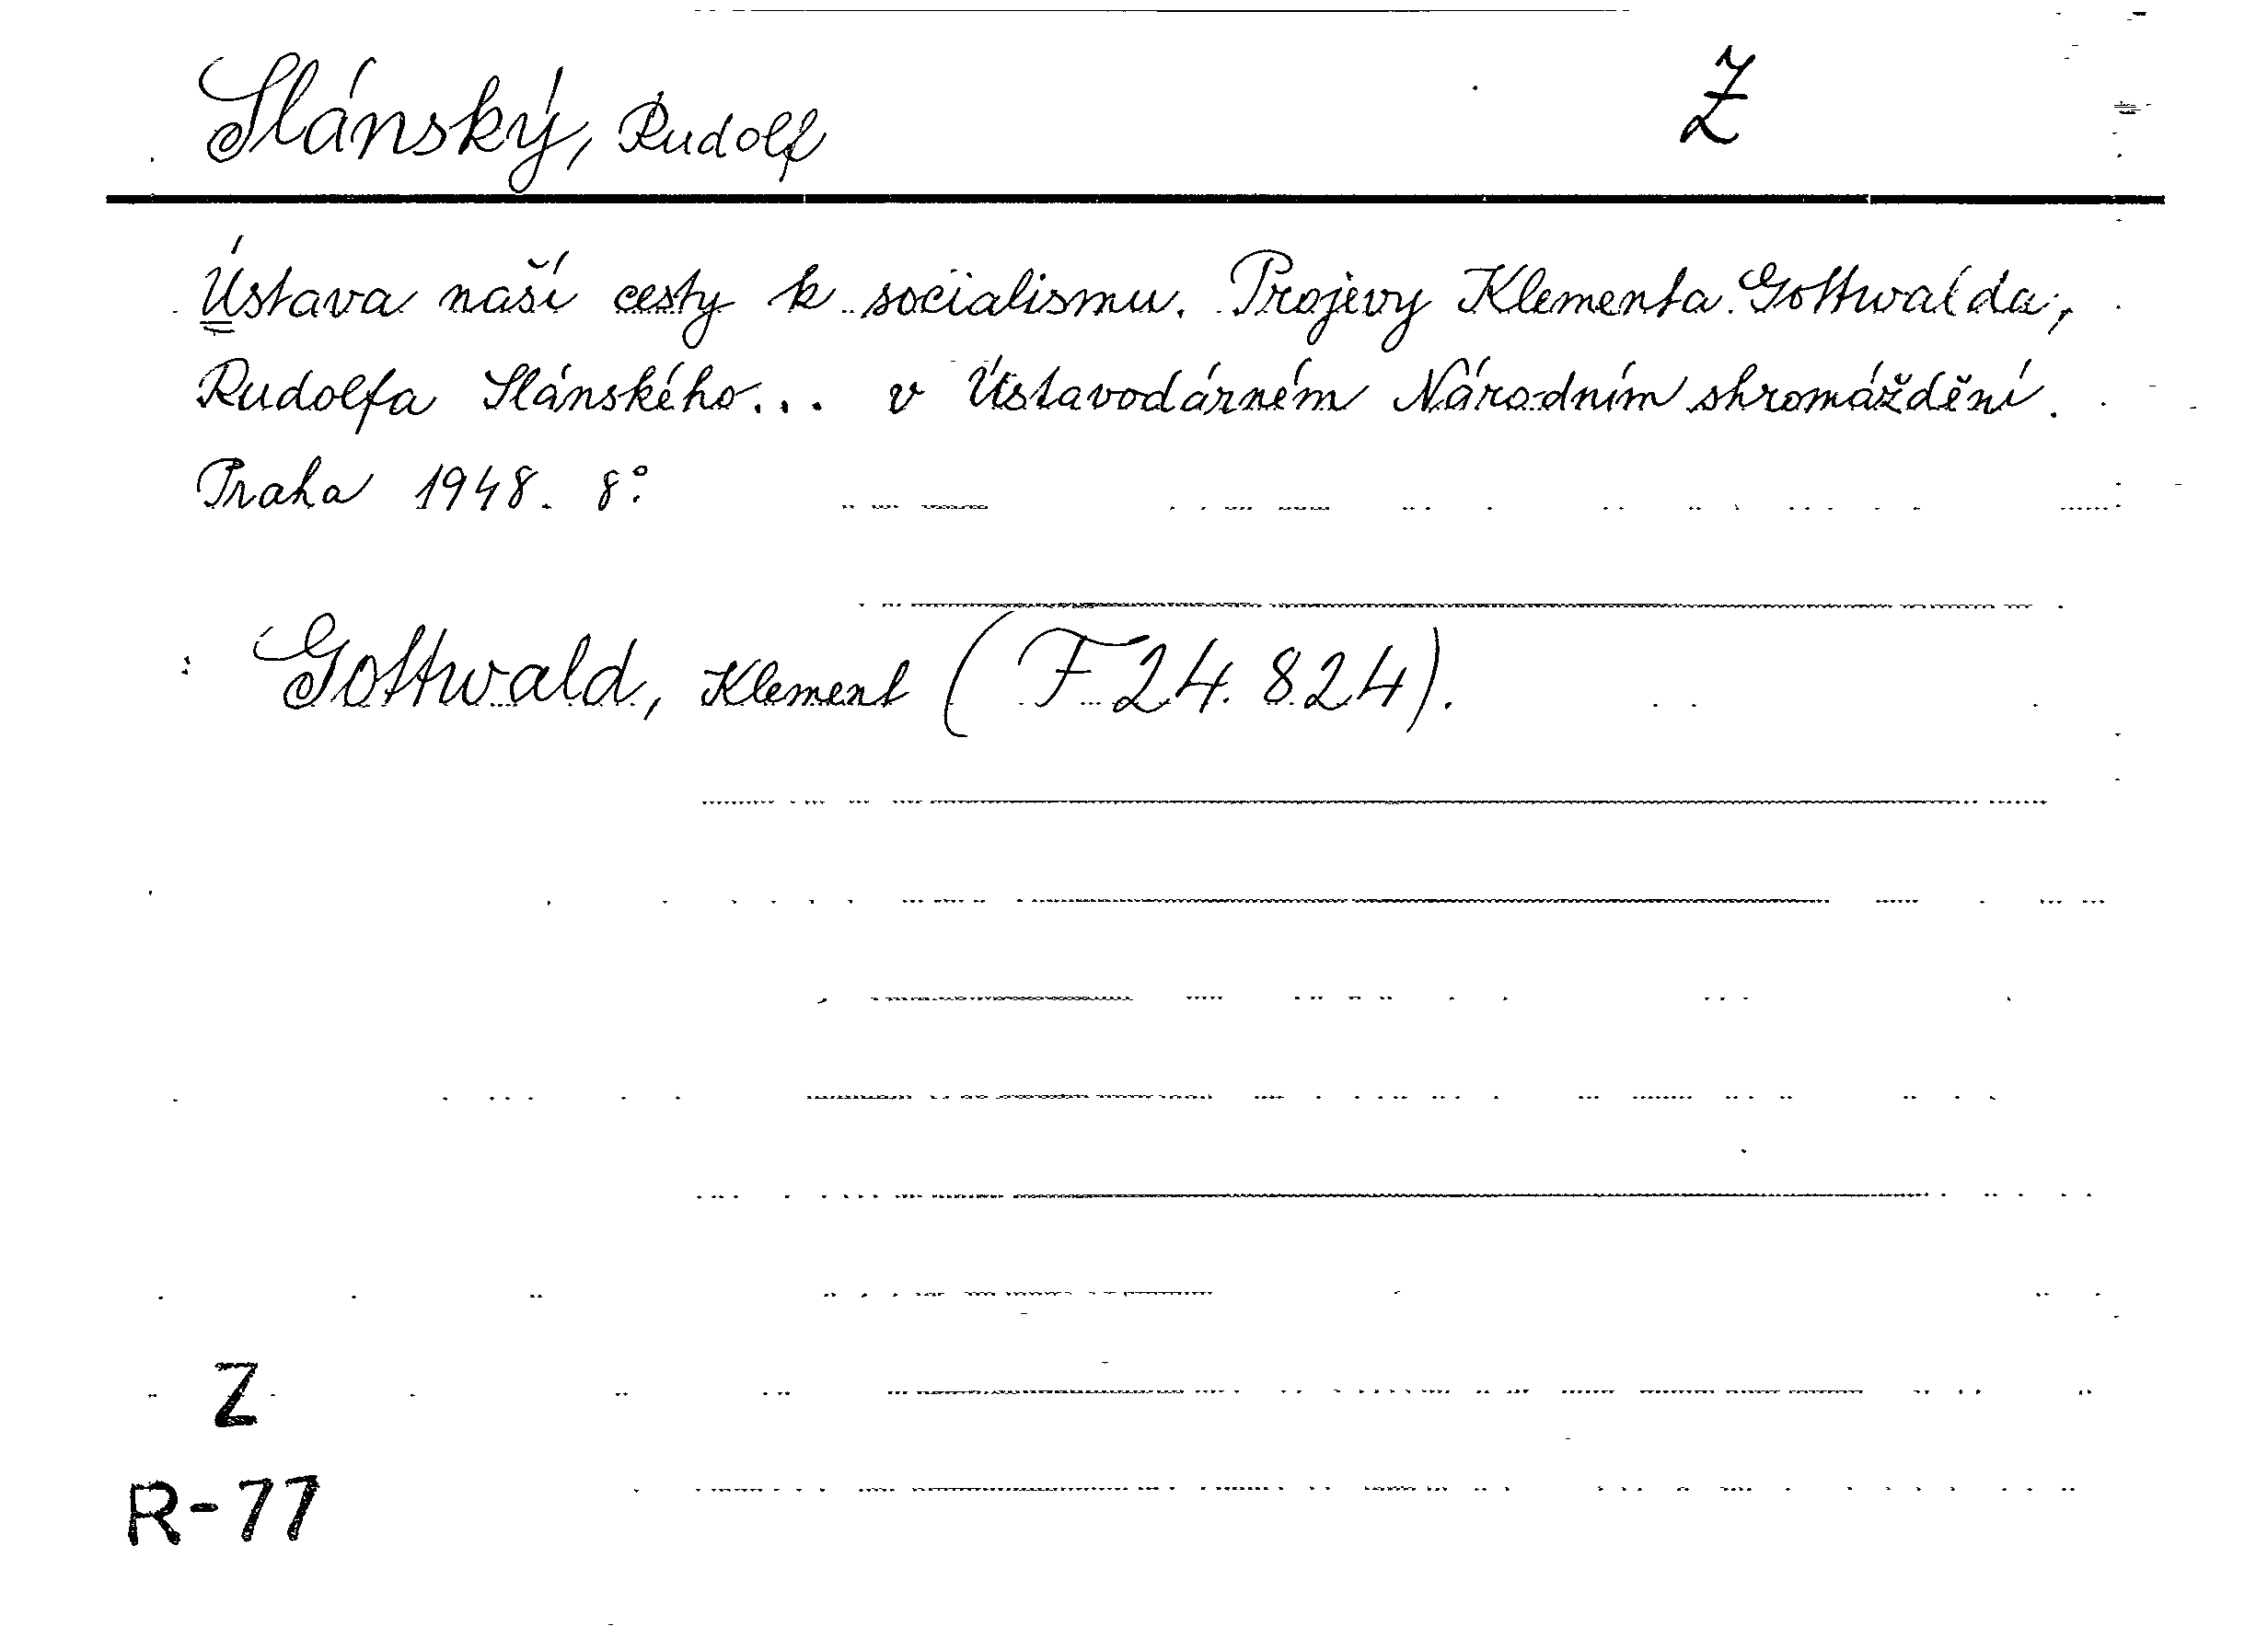 Slánský, Rudolf Z
Ústava naší cesty k socialismu. Projevy Klementa Gottwalda,
Rudolfa Slánského... v Ústavodárném Národním shromáždění.
Praha 1948. 8°.
: Gottwald, Klement (F 24.824).
Z
R-77